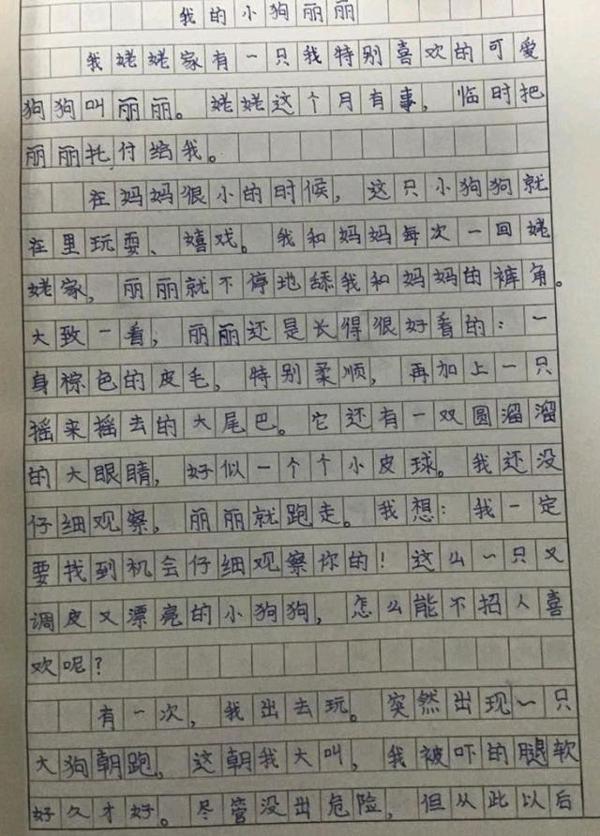 我的小狗丽丽
我姥姥家有一只我特别喜欢的可爱
狗狗叫丽丽。姥姥这个月有事，临时把
丽丽托付给我。
在妈妈很小的时候，这只小狗狗就
在里玩耍、嬉戏。我和妈妈每次一回姥
姥家，丽丽就不停地舔我和妈妈的裤角。
大致一看，丽丽还是长得很好看的：一
身棕色的皮毛，特别柔顺，再加上一只
摇来摇去的大尾巴。它还有一双圆溜溜
的大眼睛，好似一个个小皮球。我还没
仔细观察，丽丽就跑走。我想：我一定
要找到机会仔细观察你的！这么一只又
调皮又漂亮的小狗狗，怎么能不招人喜
欢呢？
有一次，我出去玩。突然出现一只
大狗朝跑，这朝我大叫，我被吓的腿软
好久才好。尽管没出危险，但从此以后